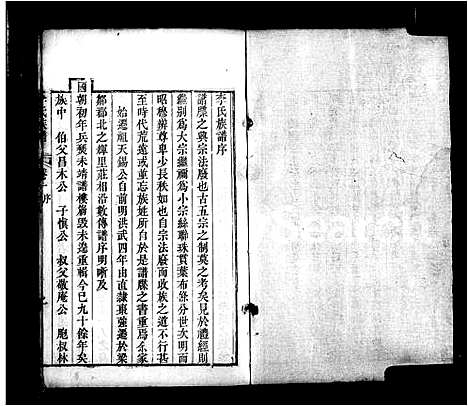 李氏族譜序
譜牒之興宗法廢也古五宗之制莫之考矣見於禮經則
繼別為大宗繼禰為小宗絲聯珠貫葉布條分世次明而
昭穆辨尊卑少長秩如自宗法廢而收族之道不行甚
至時代荒遠或並忘族姓所自於是譜牒之書重焉余家
始遷祖天錫公自前明洪武四年由直隸棗強遷於梁
鄒郡北之輝里莊相沿數傳譜序明晰及
國朝初年兵燹未靖譜樓舊毀未遑重輯今已九十餘年矣
族中 伯父昌木公 子慎公 叔父敬庵公 胞叔林
李氏族譜 卷之一 序